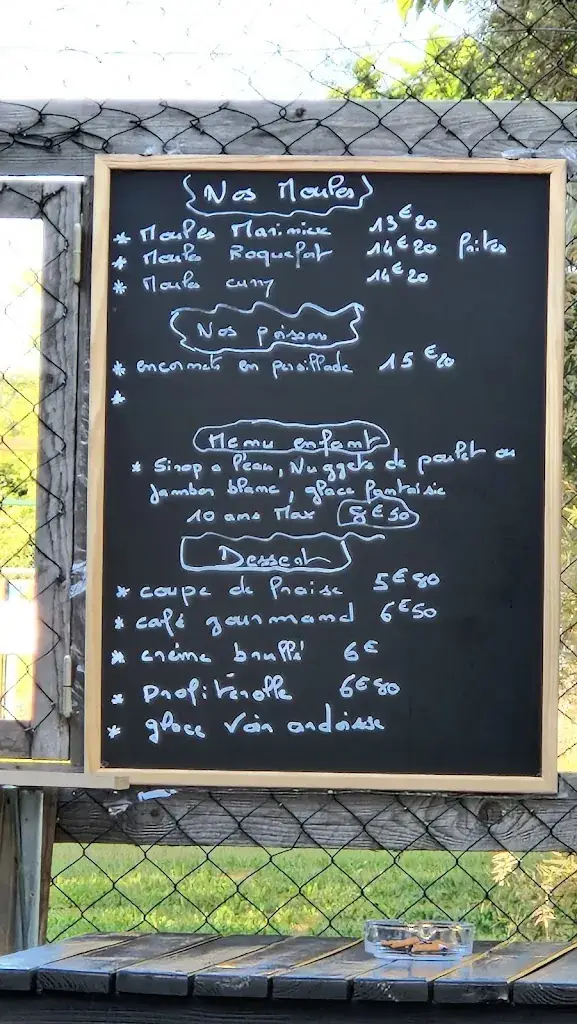 Nos Moules
* Moules Marinière 13€20
* Moules Roquefort 14€20 frites
* Moules curry 14€20
Nos poissons
* encornets en persillade 15€20
*
Menu enfant
* Sirop a l'eau, Nuggets de poulet ou
Jambon blanc, glace fantaisie
10 ans Max 8€50
Dessert
* coupe de fraise 5€80
* café gourmand 6€50
* crème brullé 6€
* Profiterolle 6€80
* glace voir ardoisse